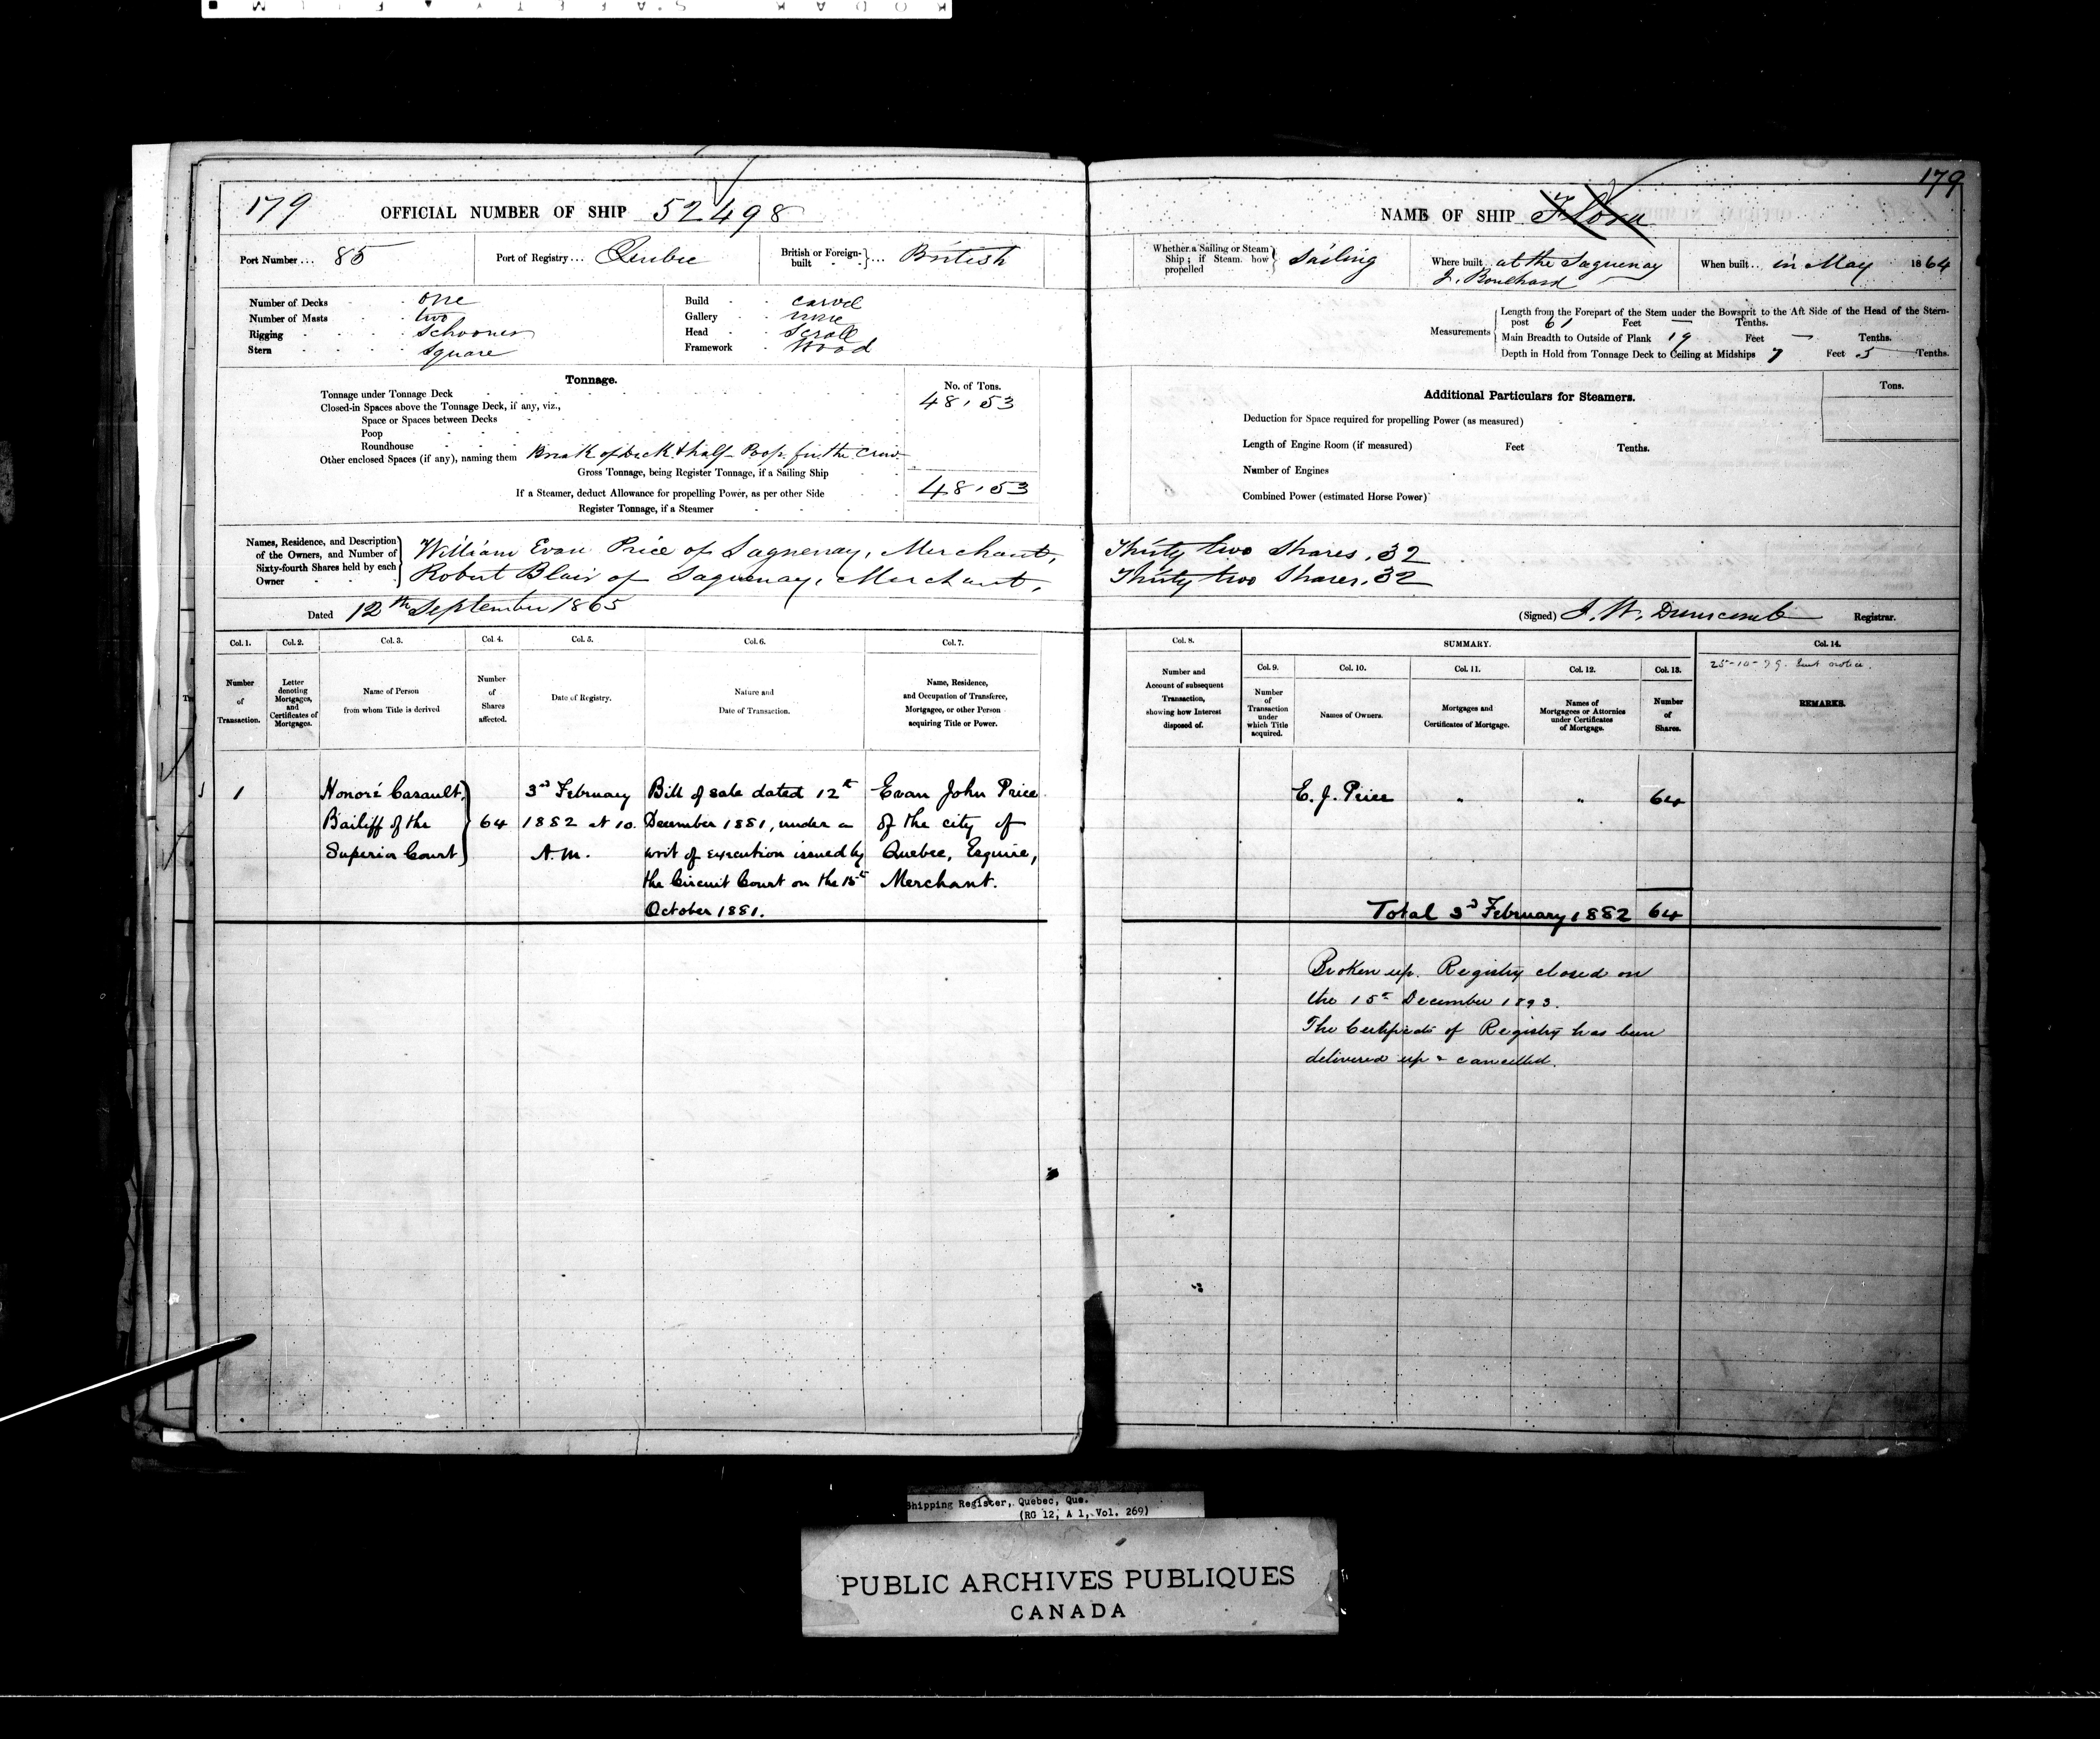 179
OFFICIAL NUMBER OF SHIP 52498
Port Number ... 85
Port of Registry ... Quebec
British or Foreign-built ... British
Number of Decks one
Number of Masts two
Rigging Schooner
Stern Square
Build carvel
Gallery none
Head Scroll
Framework Wood
Tonnage.
No. of Tons.
Tonnage under Tonnage Deck 48.53
Closed-in Spaces above the Tonnage Deck, if any, viz.,
Space or Spaces between Decks
Poop
Roundhouse
Other enclosed Spaces (if any), naming them Break of Deck & half Poop for the Crew
Gross Tonnage, being Register Tonnage, if a Sailing Ship 48.53
If a Steamer, deduct Allowance for propelling Power, as per other Side
Register Tonnage, if a Steamer
Names, Residence, and Description of the Owners, and Number of Sixty-fourth Shares held by each Owner
William Evan Price of Saguenay, Merchant,
Robert Blair of Saguenay, Merchant,
Dated 12th September 1865
Col. 1. Col. 2. Col. 3. Col. 4. Col. 5. Col. 6. Col. 7.
Number of Transaction.
Letter denoting Mortgages, and Certificates of Mortgages.
Name of Person from whom Title is derived
Number of Shares affected.
Date of Registry.
Nature and Date of Transaction.
Name, Residence, and Occupation of Transferee, Mortgagee, or other Person acquiring Title or Power.
1
Honoré Casault,
Bailiff of the
Superior Court
64
3rd February
1882 at 10.
A.M.
Bill of sale dated 12th
December 1881, under a
writ of execution issued by
the Circuit Court on the 15th
October 1881.
Evan John Price
of the city of
Quebec, Esquire,
Merchant.
179
NAME OF SHIP Flora
Whether a Sailing or Steam Ship; if Steam, how propelled Sailing
Where built at the Saguenay
J. Bouchard
When built .. in May 1864
Measurements
Length from the Forepart of the Stem under the Bowsprit to the Aft Side of the Head of the Stern-
post 61 Feet — Tenths.
Main Breadth to Outside of Plank 19 Feet — Tenths.
Depth in Hold from Tonnage Deck to Ceiling at Midships 7 Feet 5 Tenths.
Additional Particulars for Steamers.
Tons.
Deduction for Space required for propelling Power (as measured)
Length of Engine Room (if measured) Feet Tenths.
Number of Engines
Combined Power (estimated Horse Power)
Thirty two Shares. 32
Thirty two Shares. 32
(Signed) J. W. Dunscomb Registrar.
Col. 8.
SUMMARY.
Col. 14.
Col. 9. Col. 10. Col. 11. Col. 12. Col. 13.
25-10-79. Sent notice.
Number and Account of subsequent Transaction, showing how Interest disposed of.
Number of Transaction under which Title acquired.
Names of Owners.
Mortgages and Certificates of Mortgage.
Names of Mortgagees or Attornies under Certificates of Mortgage.
Number of Shares.
REMARKS.
E. J. Price " " 64
Total 3rd February 1882 64
Broken up. Registry closed on
the 15th December 1893.
The Certificate of Registry has been
delivered up & cancelled.
Shipping Register, Quebec, Que.
(RG 12, A 1, Vol. 269)
PUBLIC ARCHIVES PUBLIQUES
CANADA